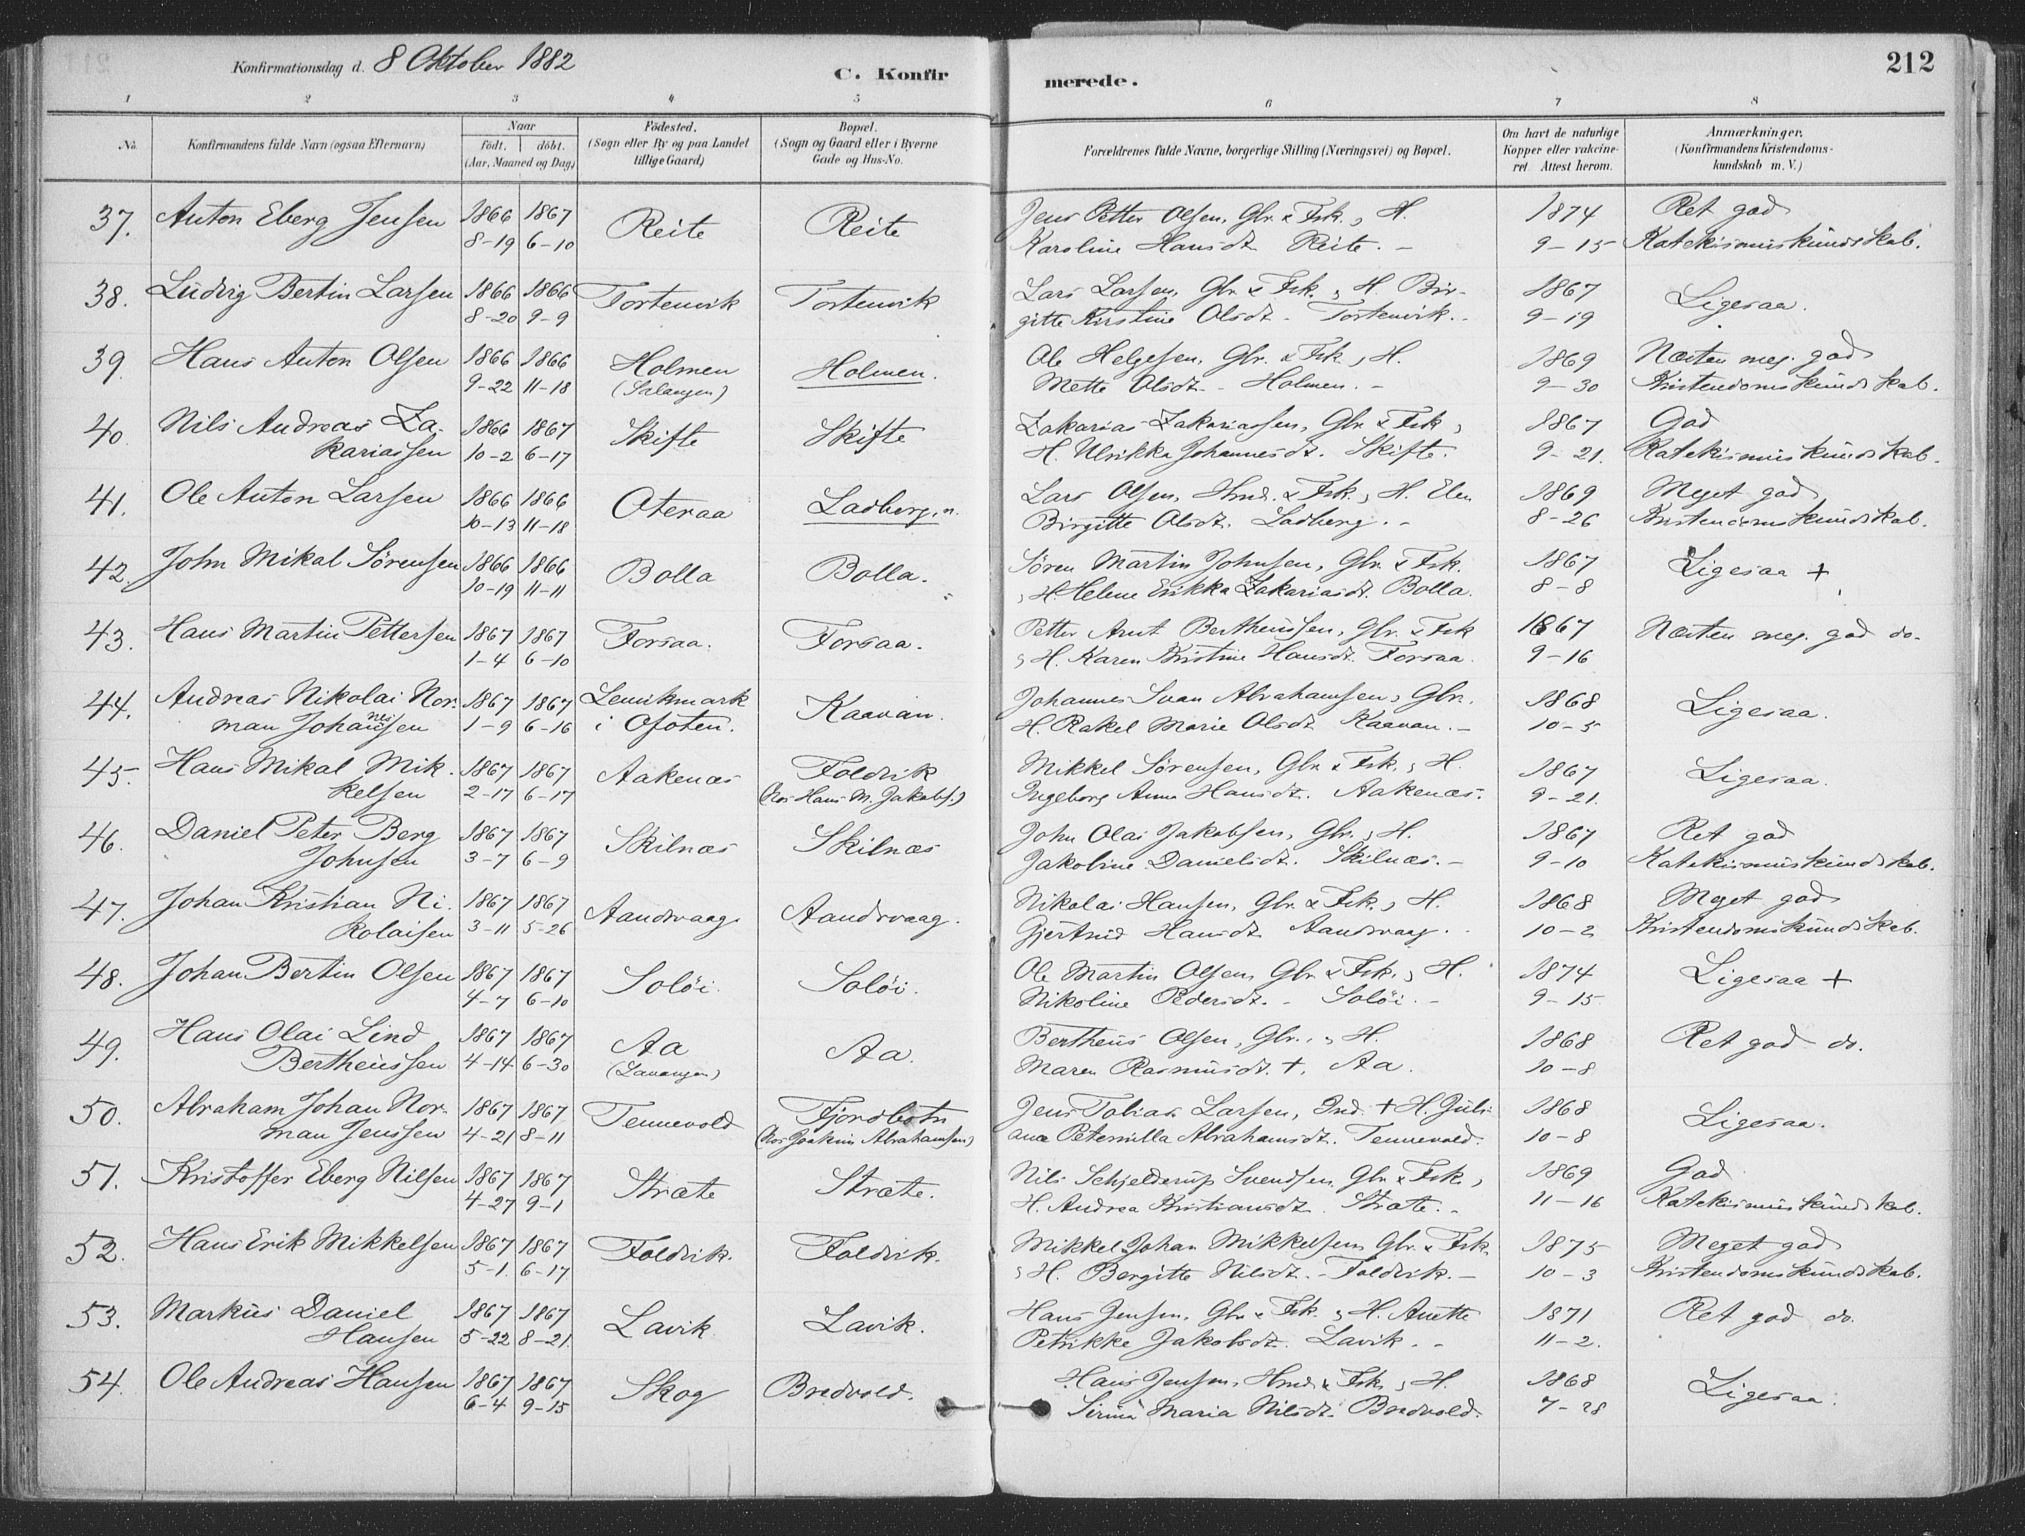 Konfirmationsdag d. 8 Oktober 1882
C. Konfirmerede.
212
1 2 3 4 5 6 7 8
No. Konfirmandens fulde Navn (ogsaa Efternavn) Naar født. døbt. (Aar, Maaned og Dag) Fødested. (Sogn eller By og paa Landet tillige Gaard) Bopæl. (Sogn og Gaard eller i Byerne Gade og Hus-No. Forældrenes fulde Navne, borgerlige Stilling (Næringsvei) og Bopæl. Om havt de naturlige Kopper eller vakcineret. Attest herom. Anmærkninger. (Konfirmandens Kristendomskundskab m. V.)
37. Anton Eberg Jensen 1866 1867 Reite Reite Jens Petter Olsen, Gbr. & Fsk., H. 1874 Ret god
8-19 6-10 Karoline Hansdt. Reite. - 9-15 Katekismuskundskab.
38. Ludvig Bertin Larsen 1866 1866 Tortenvik Tortenvik Lars Larsen, Gbr & Fsk., H Bir- 1867 Ligesaa.
8-20 9-9 gitte Kirstine Olsdt. Tortenvik. 9-19
39. Hans Anton Olsen 1866 1866 Holmen Holmen. Ole Helgesen, Gbr. & Fsk., H. 1869 Næsten meg. god
9-22 11-18 (Salangen) Mette Olsdt. Holmen. - 9-30 Kristendomskundskab.
40. Nils Andreas Za- 1866 1867 Skifte Skifte Zakarias Zakariassen, Gbr & Fsk, 1867 God
kariassen 10-2 6-17 H. Ulrikka Johannesdt. Skifte. 9-21. Katekismuskundskab.
41. Ole Anton Larsen 1866 1866 Oteraa Ladberg.n. Lars Olsen, Hmd. & Fsk, H. Elen 1869 Meget god
10-13 11-18 Birgitte Olsdt. Ladberg. - 8-26 Kristendomskundskab.
42. John Mikal Sørensen 1866 1866 Bolla Bolla. Søren Martin Johnsen, Gbr. & Fsk. 1867 Ligesaa +
10-19 11-11 , H. Helene Erikka Zakariasdt. Bolla. 8-8
43. Hans Martin Pettersen 1867 1867 Forsaa. Forsaa. Petter Arnt Bertheussen, Gbr. & Fsk 1867 Næsten meg. god do.
1-4 6-10 , H. Karen Kristine Hansdt. Forsaa. 9-16
44. Andreas Nikolai Nor- 1867 1867 Lenvikmark Kaavan. Johannes Svan Abrahamsen, Gbr. 1868 Ligesaa.
man Johannessen 1-9 6-16 i Ofoten. H. Rakel Marie Olsdt. Kaavan. - 10-5
45. Hans Mikal Mik- 1867 1867 Aakenæs Foldvik Mikkel Sørensen, Gbr. & Fsk., H. 1867 Ligesaa.
kelsen 2-17 6-17 (hos Hans M. Jakobs.) Ingeborg Anna Hansdt. Aakenæs. 9-21.
46. Daniel Peter Berg 1867 1867 Skilnæs Skilnæs John Olai Jakobsen, Gbr., H. 1867 Ret god
Johnsen 3-7 6-9 Jakobine Danielsdt. Skilnæs. - 9-10 Katekismuskundskab.
47. Johan Kristian Ni- 1867 1867 Aandsvaag Aandsvaag. Nikolai Hansen, Gbr. & Fsk., H. 1868 Meget god
kolaisen 3-11 5-26 Gjertrud Hansdt. Aandsvaag. 10-2 Kristendomskundskab.
48. Johan Bertin Olsen 1867 1867 Soløi. Soløi. Ole Martin Olsen, Gbr. & Fsk., H. 1874 Ligesaa +
4-7 6-10 Nikoline Pedersdt. - Soløi. - 9-15
49. Hans Olai Lind 1867 1867 Aa Aa. Bertheus Olsen, Gbr., H. 1868 Ret god do.
Bertheussen 4-14 6-30 (Lavangen) Maren Rasmusdt. +, Aa. 10-8
50. Abraham Johan Nor- 1867 1867 Tennevold Fjordbotn Jens Tobias Larsen, Ind. + H. Juli- 1868 Ligesaa.
man Jenssen 4-21 8-11 (hos Joakim Abrahamsen) ane Peternilla Abrahamsdt. Tennevold. 10-8
51. Kristoffer Eberg Nilsen 1867 1867 Stræte Stræte. Nils Schjelderup Svendsen, Gbr. & Fsk., 1869 God
4-27 9-1 H. Andrea Kristiansdt. Stræte. - 11-16 Katekismuskundskab.
52. Hans Erik Mikkelsen 1867 1867 Foldvik. Foldvik. Mikkel Johan Mikkelsen, Gbr. & Fsk. 1875 Meget god
5-1. 6-17 , H. Bergitte Nilsdt. - Foldvik. - 10-3 Kristendomskundskab.
53. Markus Daniel 1867 1867 Lavik Lavik. Hans Jensen, Gbr & Fsk., H. Anette 1871 Ret god do.
Hansen 5-22 8-21. Petrikke Jakobsdt. Lavik. - 11-2.
54. Ole Andreas Hansen 1867 1867 Skog Bredvold. Hans Jensen, Hmd. & Fsk, H. 1868 Ligesaa.
6-4 9-15 Sirina Maria Nilsdt. Bredvold. 7-28